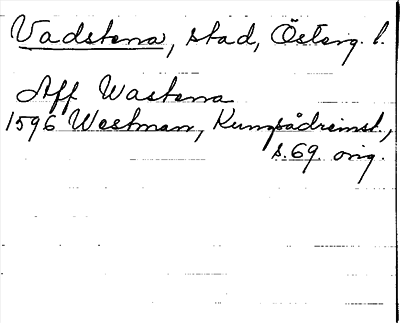 Vadstena, stad, Österg. l.
Aff Wastena
1596 Westman, Kungsådreinst.,
s. 69. orig.